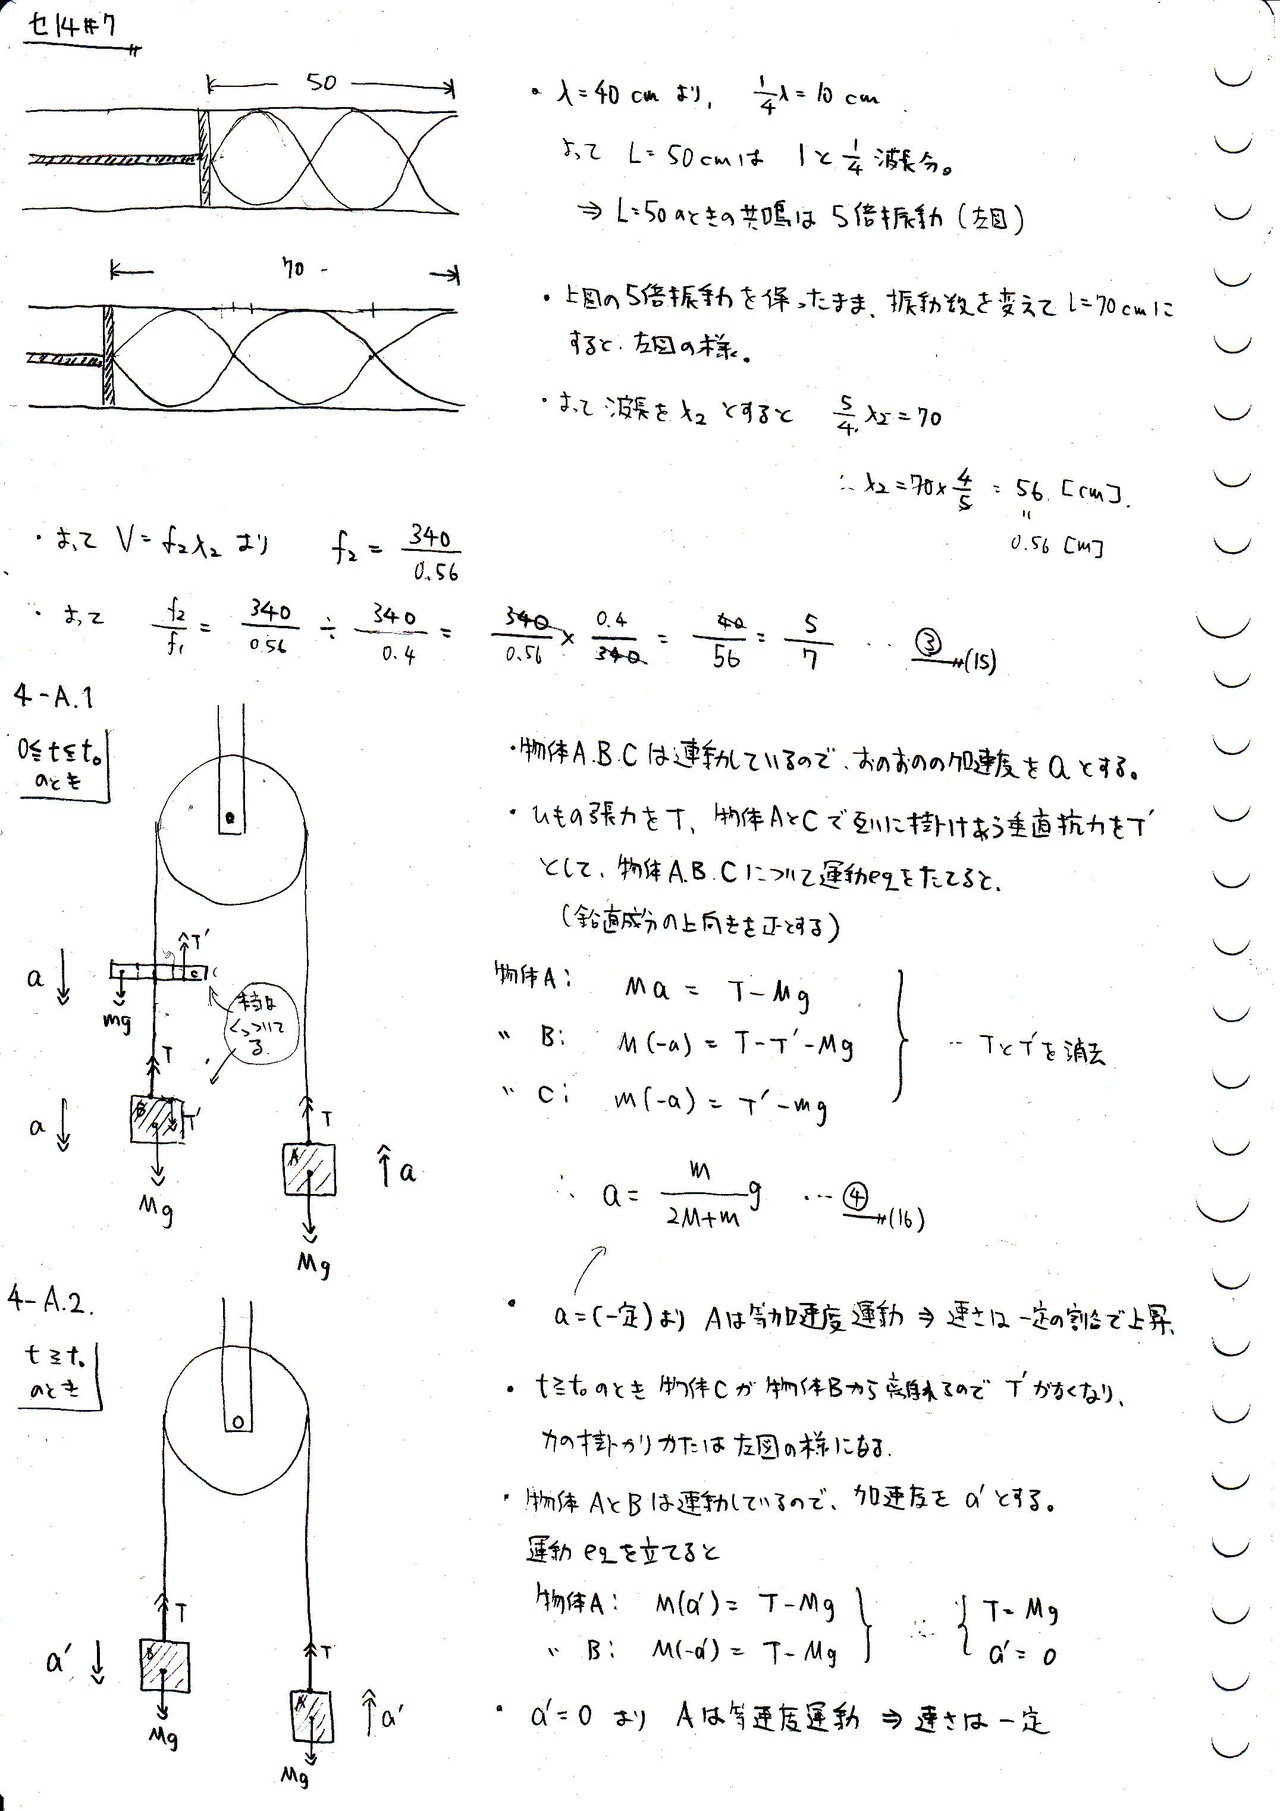 セ14#7
50
・λ=40 cm より, 1/4 λ=10 cm
よって L=50cmは 1と1/4 波長分。
⇒ L=50のときの共鳴は 5倍振動 (左図)
70
・上図の5倍振動を保ったまま、振動数を変えて L=70cmに
すると、左図の様。
・よって 波長を λ2 とすると 5/4 λ2=70
∴ λ2=70×4/5 = 56 [cm].
〃
0.56 [m]
・よって V=f2λ2 より f2 = 340/0.56
・よって f2/f1 = 340/0.56 ÷ 340/0.4 = 340/0.56 × 0.4/340 = 40/56 = 5/7 … ③ (15)
4-A.1
0≦t≦t0
のとき
・物体A.B.Cは運動しているので、おのおのの加速度をaとする。
・ひもの張力をT、物体AとCで互いに掛けあう垂直抗力をT'
として、物体A.B.Cについて運動eqをたてると、
(鉛直成分の上向きを正とする)
物体A: Ma = T-Mg
〃 B: M(-a) = T-T'-Mg
〃 C: m(-a) = T'-mg
… TとT'を消去
∴ a= m/(2M+m) g … ④ (16)
a
T'
C
mg
くっついて
る
T
a
B
T'
Mg
T
A
a
Mg
4-A.2.
t≧t0
のとき
・a=(一定)より Aは等加速度運動 ⇒ 速さは一定の割合で上昇、
・t≧t0のとき 物体Cが物体Bから離れるので T'がなくなり、
力の掛かりかたは左図の様になる.
・物体AとBは運動しているので、加速度を a'とする。
運動eqを立てると
物体A: M(a')= T-Mg
〃 B: M(-a')= T-Mg
∴ { T=Mg
a'=0
・a'=0 より Aは等速度運動 ⇒ 速さは一定
T
B
a'
Mg
T
A
a'
Mg